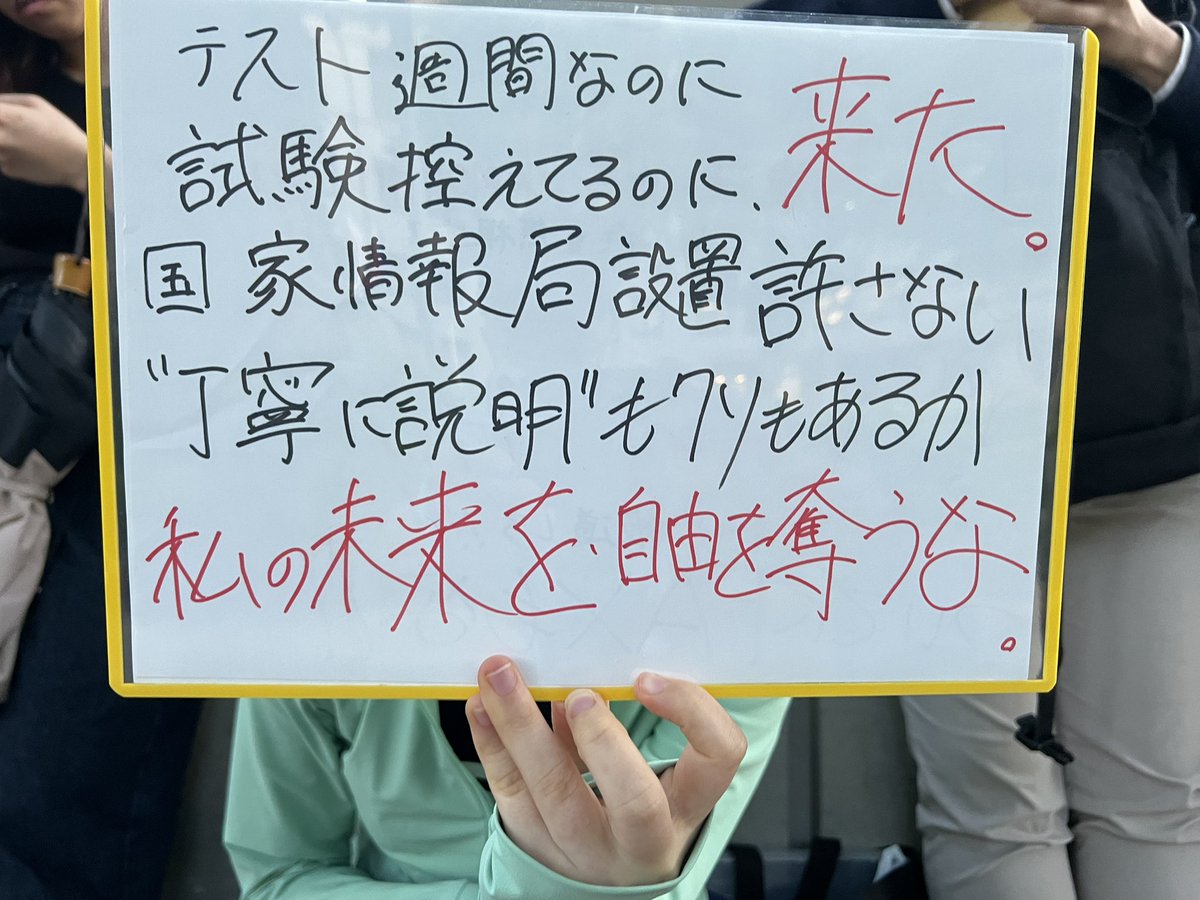 テスト週間なのに
試験控えてるのに、来た。
国家情報局設置許さない
"丁寧に説明"もクソもあるか
私の未来を、自由を奪うな。